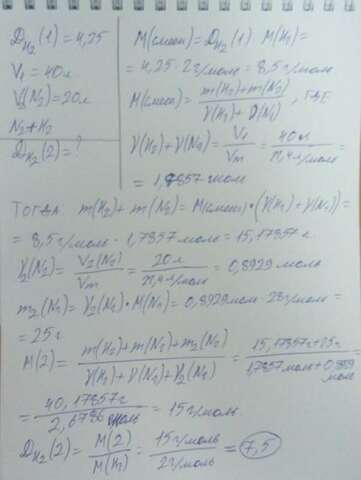 D_H₂(1) = 4,25
V₁ = 40л
V₂(N₂) = 20л
N₂ + H₂
D_H₂(2) = ?
M(смеси) = D_H₂(1) · M(H₂) =
= 4,25 · 2г/моль = 8,5г/моль
M(смеси) = (m(H₂) + m(N₂)) / (ν(H₂) + ν(N₂)), где
ν(H₂) + ν(N₂) = V₁ / Vm = 40л / 22,4 л/моль =
= 1,7857 моль
Тогда m(H₂) + m(N₂) = M(смеси) · (ν(H₂) + ν(N₂)) =
= 8,5г/моль · 1,7857 моль = 15,17857 г
ν₂(N₂) = V₂(N₂) / Vm = 20л / 22,4 л/моль = 0,8929 моль
m₂(N₂) = ν₂(N₂) · M(N₂) = 0,8929 моль · 28г/моль =
= 25г
M(2) = (m(H₂) + m(N₂) + m₂(N₂)) / (ν(H₂) + ν(N₂) + ν₂(N₂)) = (15,17857г + 25г) / (1,7857 моль + 0,8929 моль) =
= 40,17857г / 2,6786 моль = 15г/моль
D_H₂(2) = M(2) / M(H₂) = 15г/моль / 2г/моль = 7,5